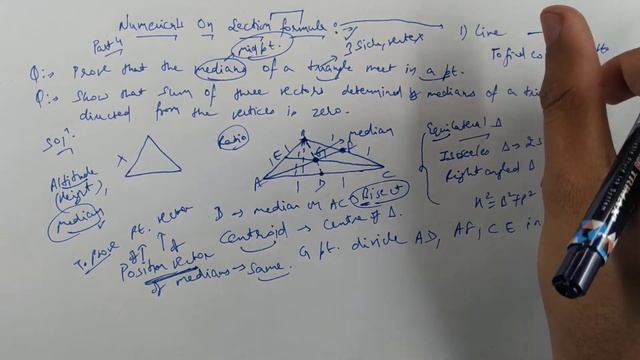 Numericals On Section formula :-
Part 4
midpt.
3 sides, vertex
1) Line
To find co
Q:- Prove that the medians of a triangle meet in a pt.
Q:- Show that sum of three vectors determined by medians of a tri
directed from the vertices is zero.
Soln:-
Ratio
median
Equilateral Δ
Isoceles Δ → 2 s
Right angled Δ
H² = B² + P²
Altitude
(Height),
median
A
E
F
G
D
C
1
1
B → median on AC → Bisect
Centroid → Centre of Δ.
G pt. divide AD, AF, CE in
To Prove
pt. vector
of
of
Position vector
of medians → same.